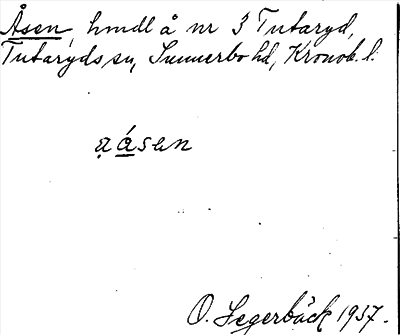 Åsen, hmdl å nr 3 Tutaryd,
Tutaryds sn, Sunnerbo hd, Kronob. l.
a̤ á̱sen
O. Segerbäck 1937.